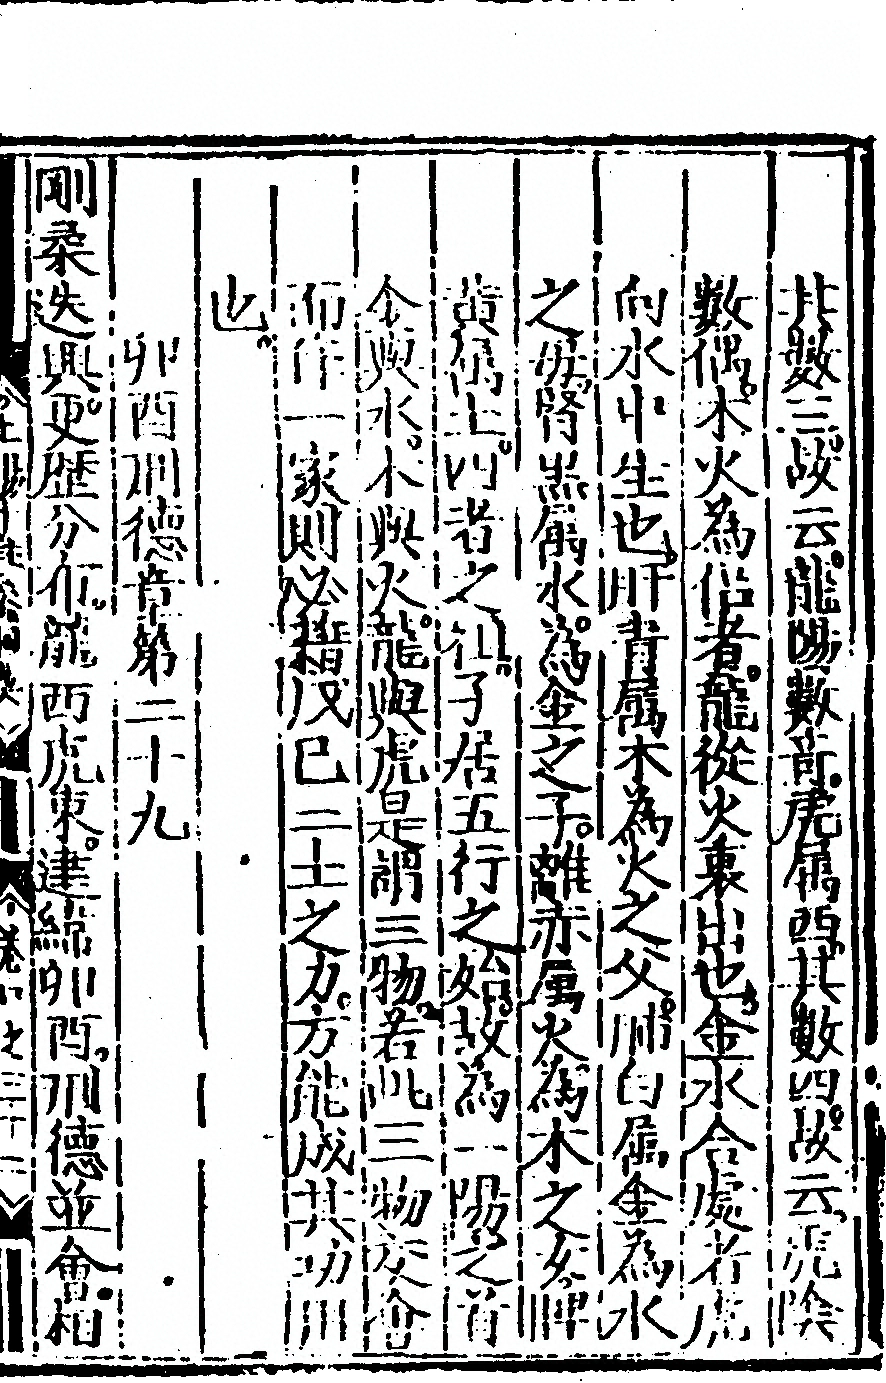 其數三故云龍陽數奇虎屬西其數四故云虎陰
數偶木火為侣者龍從火裏出也金水合處者虎
向水中生也肝青屬木為火之父肺白屬金為水
之母腎黑屬水為金之子離赤屬火為木之女脾
黄屬土四者之祖子居五行之始故為一陽之首
金與水木與火龍與虎是謂三物若此三物交會
而作一家則必藉戊巳二土之力方能成其功用
也
卯酉刑德章第二十九
剛柔迭興更歴分布龍西虎東建緯卯酉刑德並會相